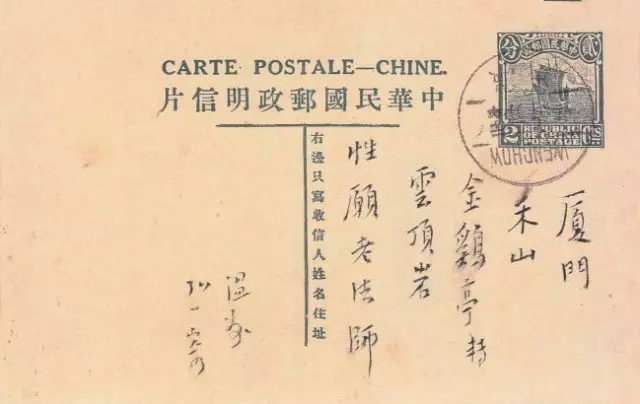 CARTE POSTALE—CHINE.
中華民國郵政明信片
貳分
中華民國郵政
2 REPUBLIC OF CHINA POSTAGE CTS
WENCHOW
廈門
禾山
金鷄亭轉
雲頂岩
性願老法師
右邊只寫收信人姓名住址